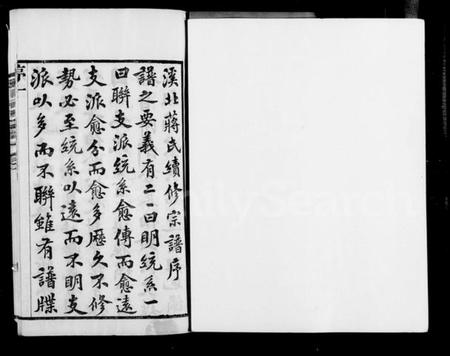 溪北蔣氏續修宗譜序
譜之要義有二一曰明統系一
曰聯支派統系愈傳而愈遠
支派愈分而愈多歷久不修
勢必至統系以遠而不明支
派以多而不聯雖有譜牒
序
FamilySearch